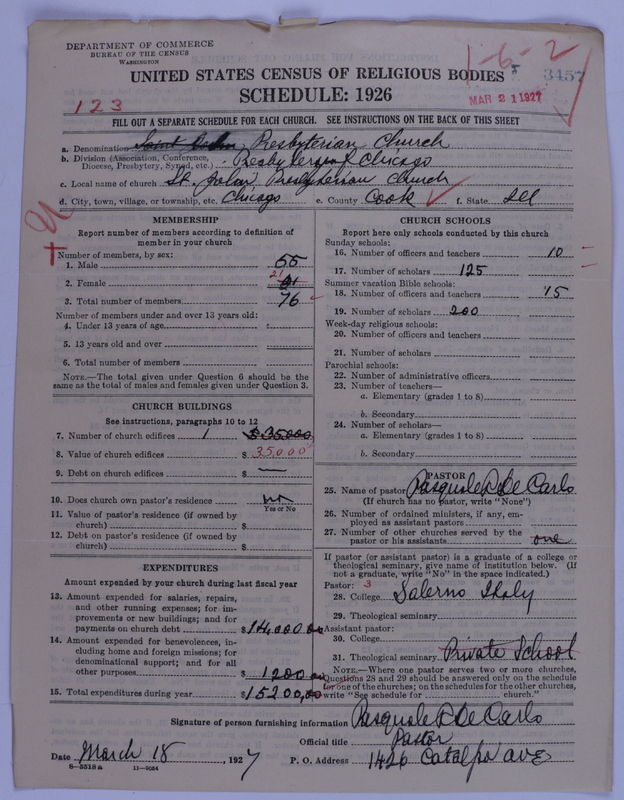 DEPARTMENT OF COMMERCE
BUREAU OF THE CENSUS
WASHINGTON
1-6-2
3457
UNITED STATES CENSUS OF RELIGIOUS BODIES
SCHEDULE: 1926
MAR 21 1927
123
FILL OUT A SEPARATE SCHEDULE FOR EACH CHURCH. SEE INSTRUCTIONS ON THE BACK OF THIS SHEET
a. Denomination Saint John Presbyterian Church
b. Division (Association, Conference, Diocese, Presbytery, Synod, etc.) Presbytery of Chicago
c. Local name of church St. John Presbyterian Church
d. City, town, village, or township, etc. Chicago e. County Cook f. State Ill
MEMBERSHIP
Report number of members according to definition of
member in your church
Number of members, by sex:
1. Male 55
2. Female 21
3. Total number of members 76
Number of members under and over 13 years old:
4. Under 13 years of age
5. 13 years old and over
6. Total number of members
NOTE.—The total given under Question 6 should be the
same as the total of males and females given under Question 3.
CHURCH BUILDINGS
See instructions, paragraphs 10 to 12
7. Number of church edifices 1 $35000
8. Value of church edifices $ 35000
9. Debt on church edifices $ —
10. Does church own pastor's residence no
Yes or No
11. Value of pastor's residence (if owned by
church) $
12. Debt on pastor's residence (if owned by
church) $
EXPENDITURES
Amount expended by your church during last fiscal year
13. Amount expended for salaries, repairs,
and other running expenses; for im-
provements or new buildings; and for
payments on church debt $14,000.00
14. Amount expended for benevolences, in-
cluding home and foreign missions; for
denominational support; and for all
other purposes $ 1200.00
15. Total expenditures during year $15200,00
CHURCH SCHOOLS
Report here only schools conducted by this church
Sunday schools:
16. Number of officers and teachers 10
17. Number of scholars 125
Summer vacation Bible schools:
18. Number of officers and teachers 15
19. Number of scholars 200
Week-day religious schools:
20. Number of officers and teachers
21. Number of scholars
Parochial schools:
22. Number of administrative officers
23. Number of teachers—
a. Elementary (grades 1 to 8)
b. Secondary
24. Number of scholars—
a. Elementary (grades 1 to 8)
b. Secondary
PASTOR
25. Name of pastor Pasquale R De Carlo
(If church has no pastor, write "None")
26. Number of ordained ministers, if any, em-
ployed as assistant pastors
27. Number of other churches served by the
pastor or his assistants one
If pastor (or assistant pastor) is a graduate of a college or
theological seminary, give name of institution below. (If
not a graduate, write "No" in the space indicated.)
Pastor: 3
28. College Salerno Italy
29. Theological seminary
Assistant pastor:
30. College
31. Theological seminary Private School
NOTE.—Where one pastor serves two or more churches,
Questions 28 and 29 should be answered only on the schedule
for one of the churches; on the schedules for the other churches,
write "See schedule for church."
Signature of person furnishing information Pasquale R De Carlo
Official title Pastor
Date March 18, 1927 P. O. Address 1426 Catalpa ave
8—5518 a 11—9054